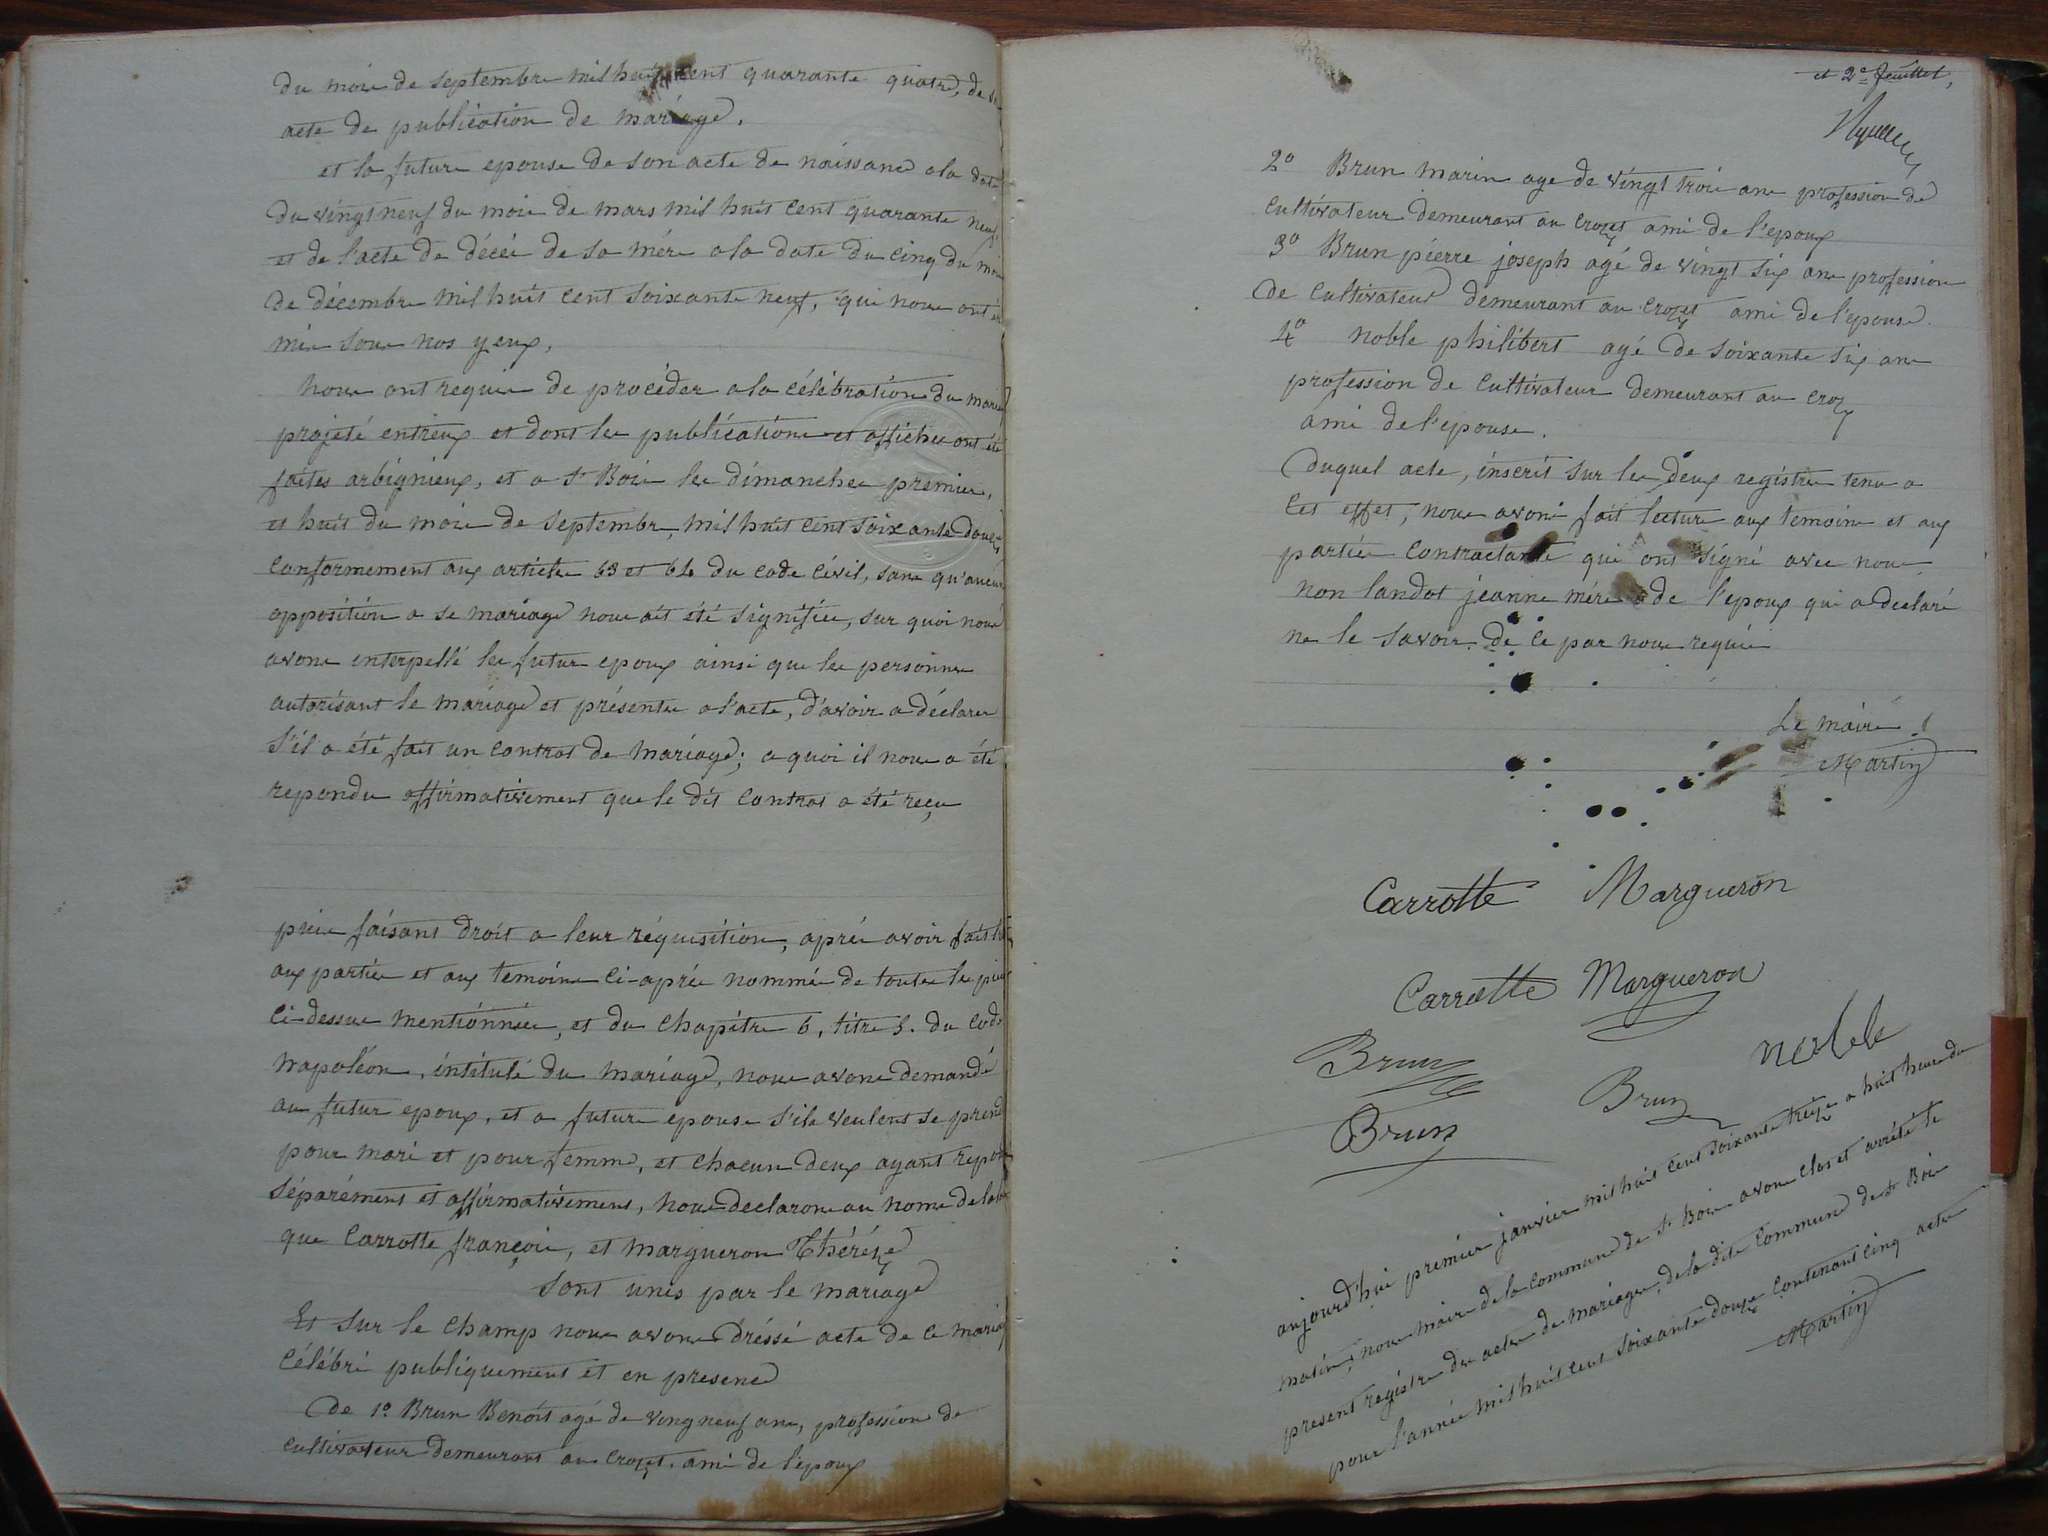 du mois de septembre mil huit cent quarante quatre, de
acte de publication de mariage.
et la future epouse de son acte de naissance a la date
du vingt neuf du mois de mars mil huit cent quarante neuf
et de l'acte de décès de sa mère a la date du cinq du mois
de décembre mil huit cent soixante neuf, qui nous ont été
mis sous nos yeux,
nous ont requis de procéder a la célébration du mariage
projeté entreux et dont les publications et affiches ont été
faites arbignieux, et a St Bois les dimanches premier,
et huit du mois de septembre, mil huit cent soixante douze
conformement aux articles 63 et 64 du code civil, sans qu'aucune
opposition a se mariage nous ait été signifiée, sur quoi nous
avons interpellé les futur epoux ainsi que les personnes
autorisant le mariage et présentes a l'acte, d'avoir a déclarer
s'il a été fait un contrat de mariage; a quoi il nous a été
repondu affirmativement que le dit contrat a été reçu
puis faisant droit a leur réquisition, après avoir fait
aux parties et aux temoins ci-après nommés de toutes les pièces
ci-dessus mentionnées, et du chapitre 6, titre 5. du code
napoléon, intitulé du mariage, nous avons demandé
au futur epoux, et a future epouse s'ils veulent se prendre
pour mari et pour femme, et chacun deux ayant repondu
séparément et affirmativement, nous declarons au nom de la loi
que Carrotte françois, et margueron Thérèze
sont unis par le mariage
Et sur le champ nous avons dréssé acte de ce mariage
célébré publiquement et en presence
De 1º Brun Benoit agé de vingneuf ans, profession de
cultivateur demeurant au crozet. ami de l'epoux
et 2e feuillet,
2º Brun marin age de vingt trois ans profession de
cultivateur demeurant au crozet ami de l'epoux
3º Brun piérre joseph agé de vingt six ans profession
de cultivateur demeurant au crozet ami de l'epouse.
4º noble philibert agé de soixante six ans
profession de cultivateur demeurant au croz
ami de l'epouse.
Duquel acte, inscrit sur les deux registres tenus a
cet effet, nous avons fait lecture aux temoins et aux
parties contractante qui ont signé avec nous
non landot jeanne mère de l'epoux qui a declaré
ne le savoir. de ce par nous requis
Le maire
Martin
Carrotte Margueron
Carrotte Margueron
Brun noble
Brun Brun
aujourd'hui premier janvier mil huit cent soixante treize a huit heures du
matin, nous maire de la commune de St Bois avons clos et arrété le
present registre des actes de mariages, de la dite commune de St Bois
pour l'année mil huit cent soixante douze contenant cinq actes
Martin